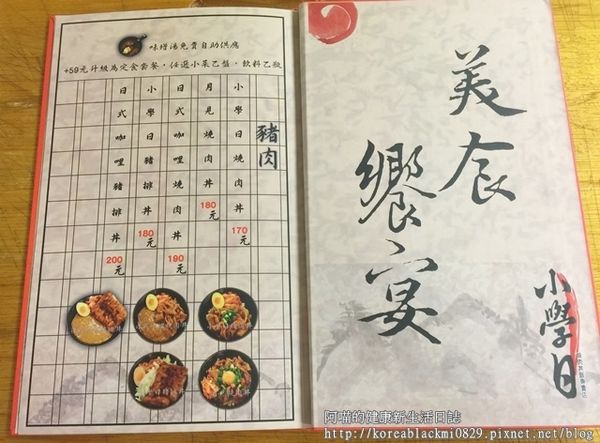 味增湯免費自助供應
+59元升級為定食套餐，任選小菜乙盤，飲料乙瓶
豬肉
小學日燒肉丼170元
月見燒肉丼180元
日式咖哩燒肉丼190元
小學日豬排丼180元
日式咖哩豬排丼200元
美食
饗宴
小學日
阿喵的健康新生活日誌
http://koreablackmi0829.pixnet.net/blog